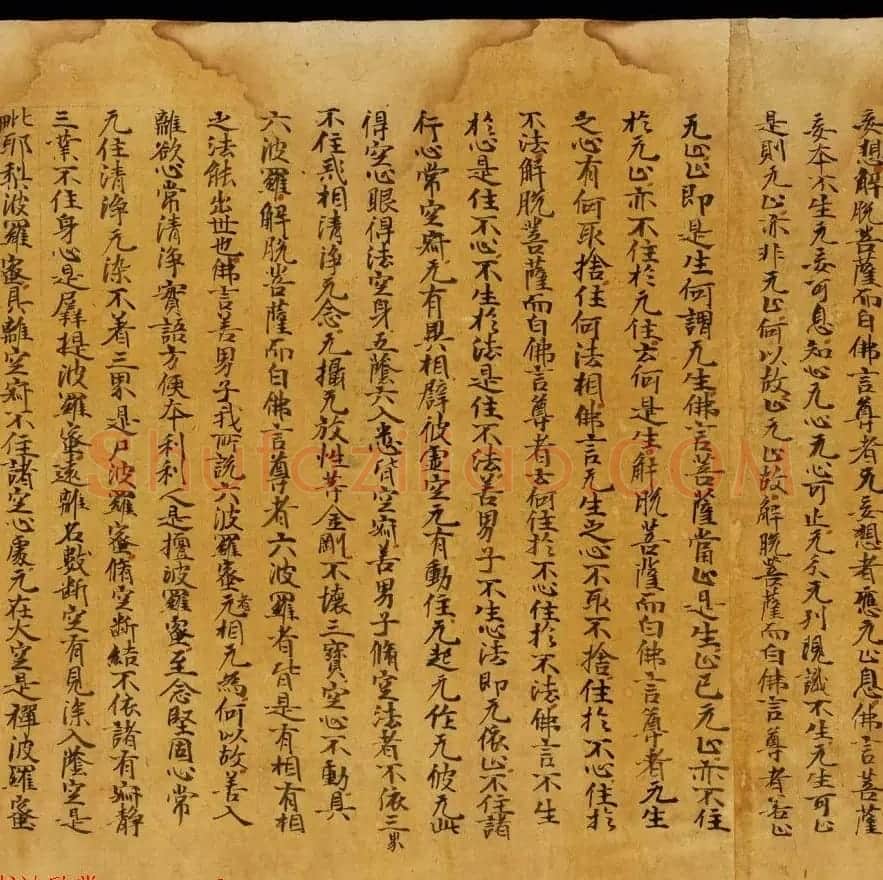 妄想解脱菩薩而白佛言尊者无妄想者應无止息佛言菩薩
妄本不生无妄可息知心无心无心可止无分无別現識不生无生可止
是則无止亦非无止何以故止无止故解脱菩薩而白佛言尊者若止
无止止即是生何謂无生佛言菩薩當止是生止已无止亦不住
於无止亦不住於无住云何是生解脱菩薩而白佛言尊者无生
之心有何取捨住何法相佛言无生之心不取不捨住於不心住於
不法解脱菩薩而白佛言尊者云何住於不心住於不法佛言不生
於心是住不心不生於法是住不法善男子不生心法即无依止不住諸
行心常空寂无有異相譬彼虛空无有動住无起无作无彼无此
得空心眼得法空身五蔭六入悉皆空寂善男子脩空法者不依三界
不住戒相清淨无念无攝无放性等金剛不壞三寶空心不動具
六波羅解脱菩薩而白佛言尊者六波羅者皆是有相有相
之法能出世也佛言善男子我所說六波羅蜜者无相无為何以故善入
離欲心常清淨實語方便本利利人是檀波羅蜜至念堅固心常
无住清淨无染不着三界是尸波羅蜜脩空斷結不依諸有寂靜
三業不住身心是羼提波羅蜜遠離名數斷空有見深入蔭空是
毗耶梨波羅蜜具離空寂不住諸空心處无在大空是禪波羅蜜
ShufaZiliao.COM